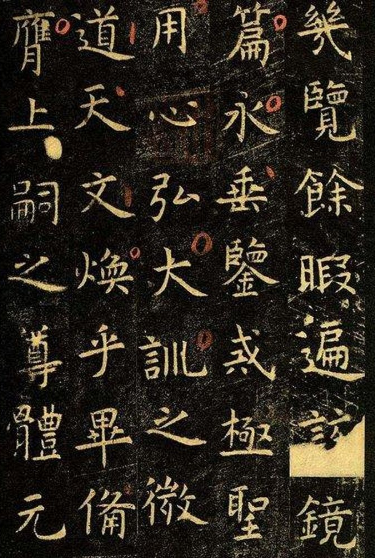 幾覽餘暇遍該鏡
篇永垂鑒戒極聖
用心弘大訓之微
道天文煥乎畢備
膺上嗣之尊體元